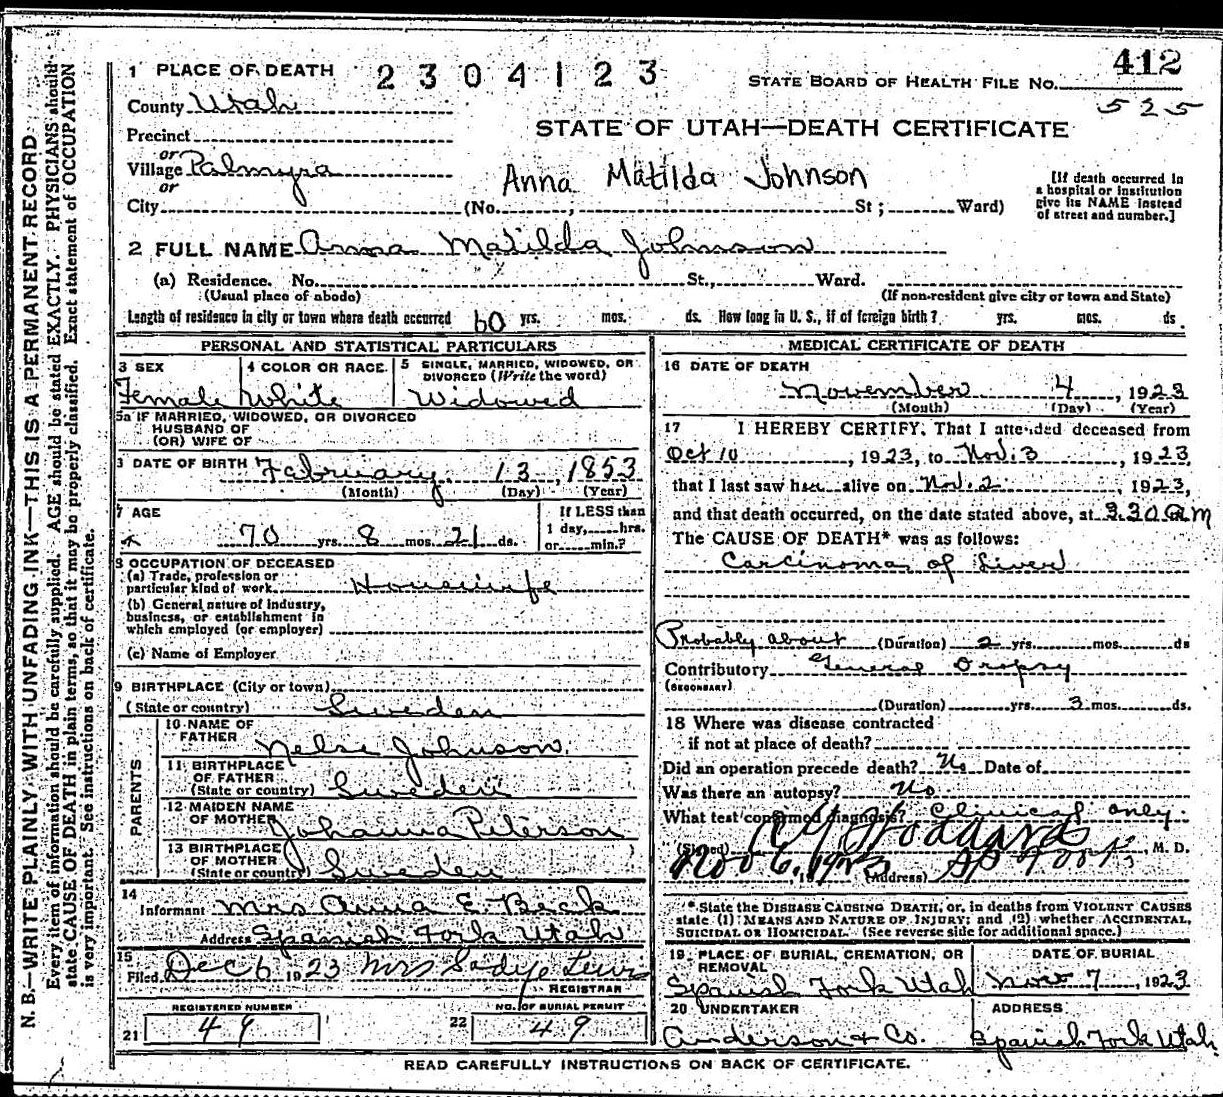 412
1 PLACE OF DEATH 2304123 STATE BOARD OF HEALTH FILE NO.
County Utah 525
STATE OF UTAH—DEATH CERTIFICATE
Precinct
or
Village Palmyra
or
Anna Matilda Johnson
[If death occurred in a hospital or institution give its NAME instead of street and number.]
City (No. ; St ; Ward)
2 FULL NAME Anna Matilda Johnson
(a) Residence. No. St., Ward.
(Usual place of abode) (If non-resident give city or town and State)
Length of residence in city or town where death occurred 60 yrs. mos. ds. How long in U. S., if of foreign birth? yrs. mos. ds.
PERSONAL AND STATISTICAL PARTICULARS
3 SEX 4 COLOR OR RACE 5 SINGLE, MARRIED, WIDOWED, OR DIVORCED (Write the word)
Female White Widowed
5a IF MARRIED, WIDOWED, OR DIVORCED
HUSBAND OF
(OR) WIFE OF
DATE OF BIRTH February 13, 1853
(Month) (Day) (Year)
7 AGE If LESS than
1 day, hrs.
70 yrs. 8 mos. 21 ds. or min.?
8 OCCUPATION OF DECEASED
(a) Trade, profession or
particular kind of work Housewife
(b) General nature of industry,
business, or establishment in
which employed (or employer)
(c) Name of Employer
9 BIRTHPLACE (City or town)
(State or country) Sweden
PARENTS
10 NAME OF
FATHER Nelse Johnson.
11 BIRTHPLACE
OF FATHER
(State or country) Sweden
12 MAIDEN NAME
OF MOTHER Johanna Peterson
13 BIRTHPLACE
OF MOTHER
(State or country) Sweden
14
Informant Mrs Anna E. Beck
Address Spanish Fork Utah
15
Filed Dec 6 1923 Mrs Sadye Lewis
REGISTRAR
REGISTERED NUMBER NO. OF BURIAL PERMIT
21 49 22 49
MEDICAL CERTIFICATE OF DEATH
16 DATE OF DEATH
November 4, 1923
(Month) (Day) (Year)
17 I HEREBY CERTIFY, That I attended deceased from
Oct 10, 1923, to Nov. 3, 1923,
that I last saw her alive on Nov. 2, 1923,
and that death occurred, on the date stated above, at 3.30 am
The CAUSE OF DEATH* was as follows:
Carcinoma of Liver
Probably about (Duration) 2 yrs. mos. ds
Contributory General Dropsy
(SECONDARY)
(Duration) yrs. 3 mos. ds.
18 Where was disease contracted
if not at place of death?
Did an operation precede death? No Date of
Was there an autopsy? No
What test confirmed diagnosis? Clinical only.
(Signed) , M. D.
Nov 6, (Address) Sp Fork
*State the DISEASE CAUSING DEATH, or, in deaths from VIOLENT CAUSES
state (1) MEANS AND NATURE OF INJURY; and (2) whether ACCIDENTAL,
SUICIDAL OR HOMICIDAL. (See reverse side for additional space.)
19 PLACE OF BURIAL, CREMATION, OR REMOVAL DATE OF BURIAL
Spanish Fork Utah Nov 7, 1923
20 UNDERTAKER ADDRESS
Anderson & Co. Spanish Fork Utah.
READ CAREFULLY INSTRUCTIONS ON BACK OF CERTIFICATE.
N. B.—WRITE PLAINLY WITH UNFADING INK—THIS IS A PERMANENT RECORD
Every item of information should be carefully supplied. AGE should be stated EXACTLY. PHYSICIANS should
state CAUSE OF DEATH in plain terms, so that it may be properly classified. Exact statement of OCCUPATION
is very important. See instructions on back of certificate.